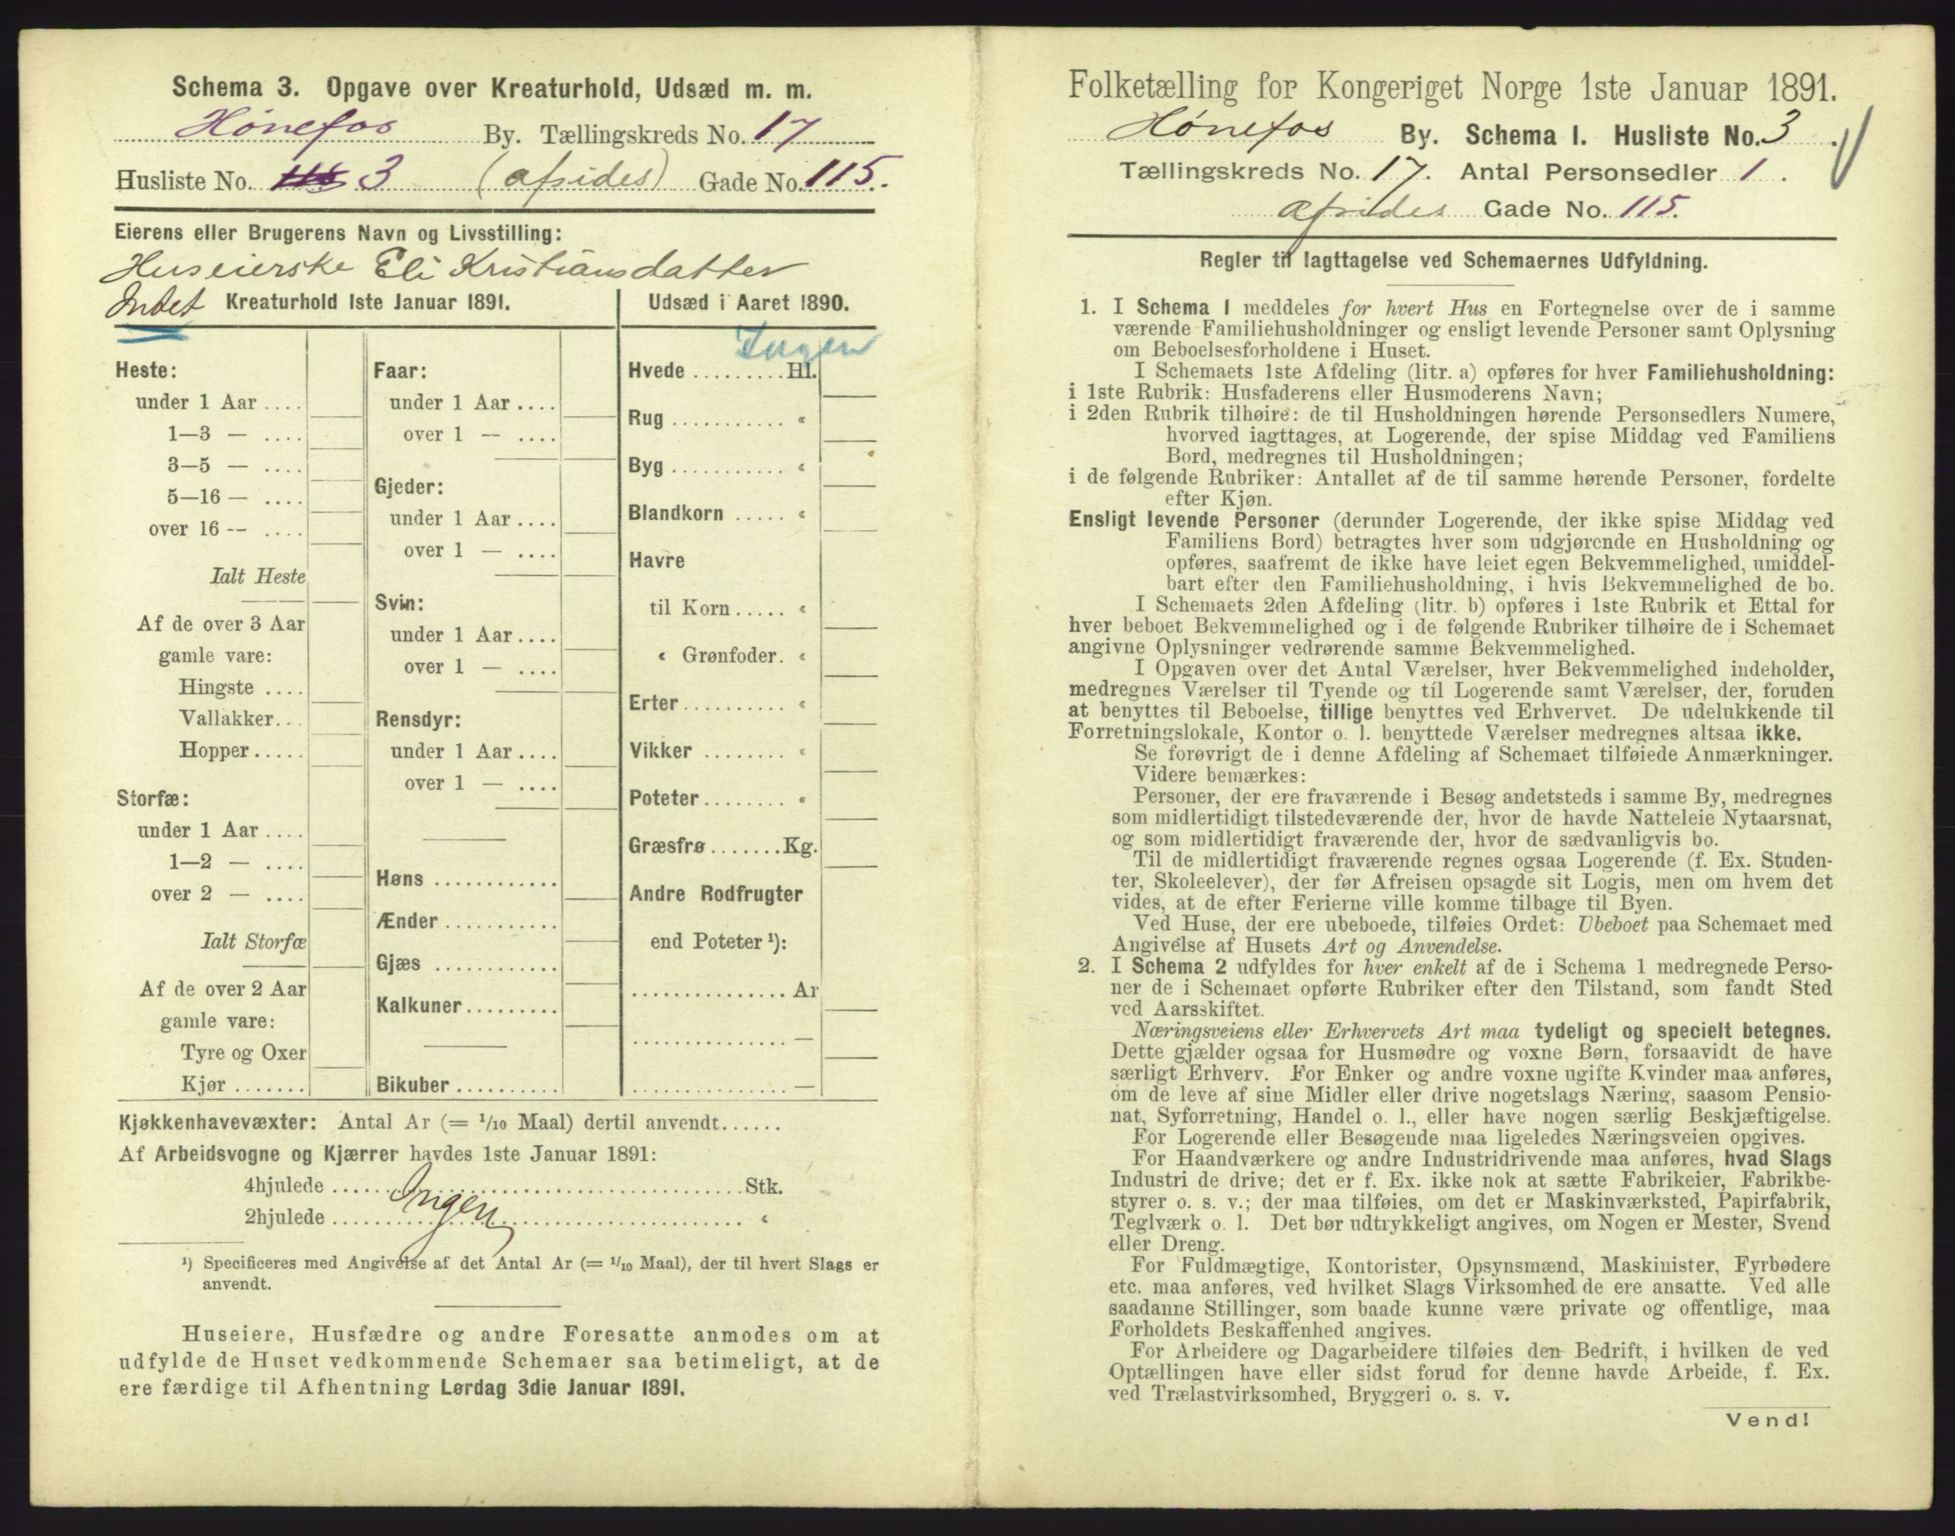 Schema 3. Opgave over Kreaturhold, Udsæd m. m.
Hønefos By. Tællingskreds No. 17
Husliste No. 3 (afsides) Gade No. 115.
Eierens eller Brugerens Navn og Livsstilling:
Huseierske Eli Kristiansdatter
Intet Kreaturhold 1ste Januar 1891.
Heste:
under 1 Aar ....
1—3 — ....
3—5 — ....
5—16 — ....
over 16 — ....
Ialt Heste
Af de over 3 Aar
gamle vare:
Hingste ....
Vallakker...
Hopper.....
Storfæ:
under 1 Aar ....
1—2 — ....
over 2 — ....
Ialt Storfæ
Af de over 2 Aar
gamle vare:
Tyre og Oxer
Kjør .......
Faar:
under 1 Aar ....
over 1 — ....
Gjeder:
under 1 Aar ....
over 1 — ....
Svin:
under 1 Aar ....
over 1 — ....
Rensdyr:
under 1 Aar ....
over 1 — ....
Høns ............
Ænder ...........
Gjæs ............
Kalkuner.........
Bikuber ..........
Udsæd i Aaret 1890.
Ingen
Hvede .........Hl.
Rug ........... «
Byg ........... «
Blandkorn ..... «
Havre
til Korn ..... «
« Grønfoder. «
Erter.......... «
Vikker ........ «
Poteter........ «
Græsfrø.......Kg.
Andre Rodfrugter
end Poteter ¹):
............... Ar
............... —
............... —
Kjøkkenhavevæxter: Antal Ar (= 1/10 Maal) dertil anvendt......
Af Arbeidsvogne og Kjærrer havdes 1ste Januar 1891:
4hjulede ........ Stk.
Ingen
2hjulede ........ «
¹) Specificeres med Angivelse af det Antal Ar (= 1/10 Maal), der til hvert Slags er
anvendt.
Huseiere, Husfædre og andre Foresatte anmodes om at
udfylde de Huset vedkommende Schemaer saa betimeligt, at de
ere færdige til Afhentning Lørdag 3die Januar 1891.
Folketælling for Kongeriget Norge 1ste Januar 1891.
Hønefos By. Schema I. Husliste No. 3.
Tællingskreds No. 17. Antal Personsedler 1.
afsides Gade No. 115.
Regler til Iagttagelse ved Schemaernes Udfyldning.
1. I Schema I meddeles for hvert Hus en Fortegnelse over de i samme
værende Familiehusholdninger og ensligt levende Personer samt Oplysning
om Beboelsesforholdene i Huset.
I Schemaets 1ste Afdeling (litr. a) opføres for hver Familiehusholdning:
i 1ste Rubrik: Husfaderens eller Husmoderens Navn;
i 2den Rubrik tilhøire: de til Husholdningen hørende Personsedlers Numere,
hvorved iagttages, at Logerende, der spise Middag ved Familiens
Bord, medregnes til Husholdningen;
i de følgende Rubriker: Antallet af de til samme hørende Personer, fordelte
efter Kjøn.
Ensligt levende Personer (derunder Logerende, der ikke spise Middag ved
Familiens Bord) betragtes hver som udgjørende en Husholdning og
opføres, saafremt de ikke have leiet egen Bekvemmelighed, umiddel-
bart efter den Familiehusholdning, i hvis Bekvemmelighed de bo.
I Schemaets 2den Afdeling (litr. b) opføres i 1ste Rubrik et Ettal for
hver beboet Bekvemmelighed og i de følgende Rubriker tilhøire de i Schemaet
angivne Oplysninger vedrørende samme Bekvemmelighed.
I Opgaven over det Antal Værelser, hver Bekvemmelighed indeholder,
medregnes Værelser til Tyende og til Logerende samt Værelser, der, foruden
at benyttes til Beboelse, tillige benyttes ved Erhvervet. De udelukkende til
Forretningslokale, Kontor o. l. benyttede Værelser medregnes altsaa ikke.
Se forøvrigt de i denne Afdeling af Schemaet tilføiede Anmærkninger.
Videre bemærkes:
Personer, der ere fraværende i Besøg andetsteds i samme By, medregnes
som midlertidigt tilstedeværende der, hvor de havde Natteleie Nytaarsnat,
og som midlertidigt fraværende der, hvor de sædvanligvis bo.
Til de midlertidigt fraværende regnes ogsaa Logerende (f. Ex. Studen-
ter, Skoleelever), der før Afreisen opsagde sit Logis, men om hvem det
vides, at de efter Ferierne ville komme tilbage til Byen.
Ved Huse, der ere ubeboede, tilføies Ordet: Ubeboet paa Schemaet med
Angivelse af Husets Art og Anvendelse.
2. I Schema 2 udfyldes for hver enkelt af de i Schema 1 medregnede Perso-
ner de i Schemaet opførte Rubriker efter den Tilstand, som fandt Sted
ved Aarsskiftet.
Næringsveiens eller Erhvervets Art maa tydeligt og specielt betegnes.
Dette gjælder ogsaa for Husmødre og voxne Børn, forsaavidt de have
særligt Erhverv. For Enker og andre voxne ugifte Kvinder maa anføres,
om de leve af sine Midler eller drive nogetslags Næring, saasom Pensio-
nat, Syforretning, Handel o. l., eller have nogen særlig Beskjæftigelse.
For Logerende eller Besøgende maa ligeledes Næringsveien opgives.
For Haandværkere og andre Industridrivende maa anføres, hvad Slags
Industri de drive; det er f. Ex. ikke nok at sætte Fabrikeier, Fabrikbe-
styrer o. s. v.; der maa tilføies, om det er Maskinværksted, Papirfabrik,
Teglværk o. l. Det bør udtrykkeligt angives, om Nogen er Mester, Svend
eller Dreng.
For Fuldmægtige, Kontorister, Opsynsmænd, Maskinister, Fyrbødere
etc. maa anføres, ved hvilket Slags Virksomhed de ere ansatte. Ved alle
saadanne Stillinger, som baade kunne være private og offentlige, maa
Forholdets Beskaffenhed angives.
For Arbeidere og Dagarbeidere tilføies den Bedrift, i hvilken de ved
Optællingen have eller sidst forud for denne havde Arbeide, f. Ex.
ved Trælastvirksomhed, Bryggeri o. s. v.
Vend!